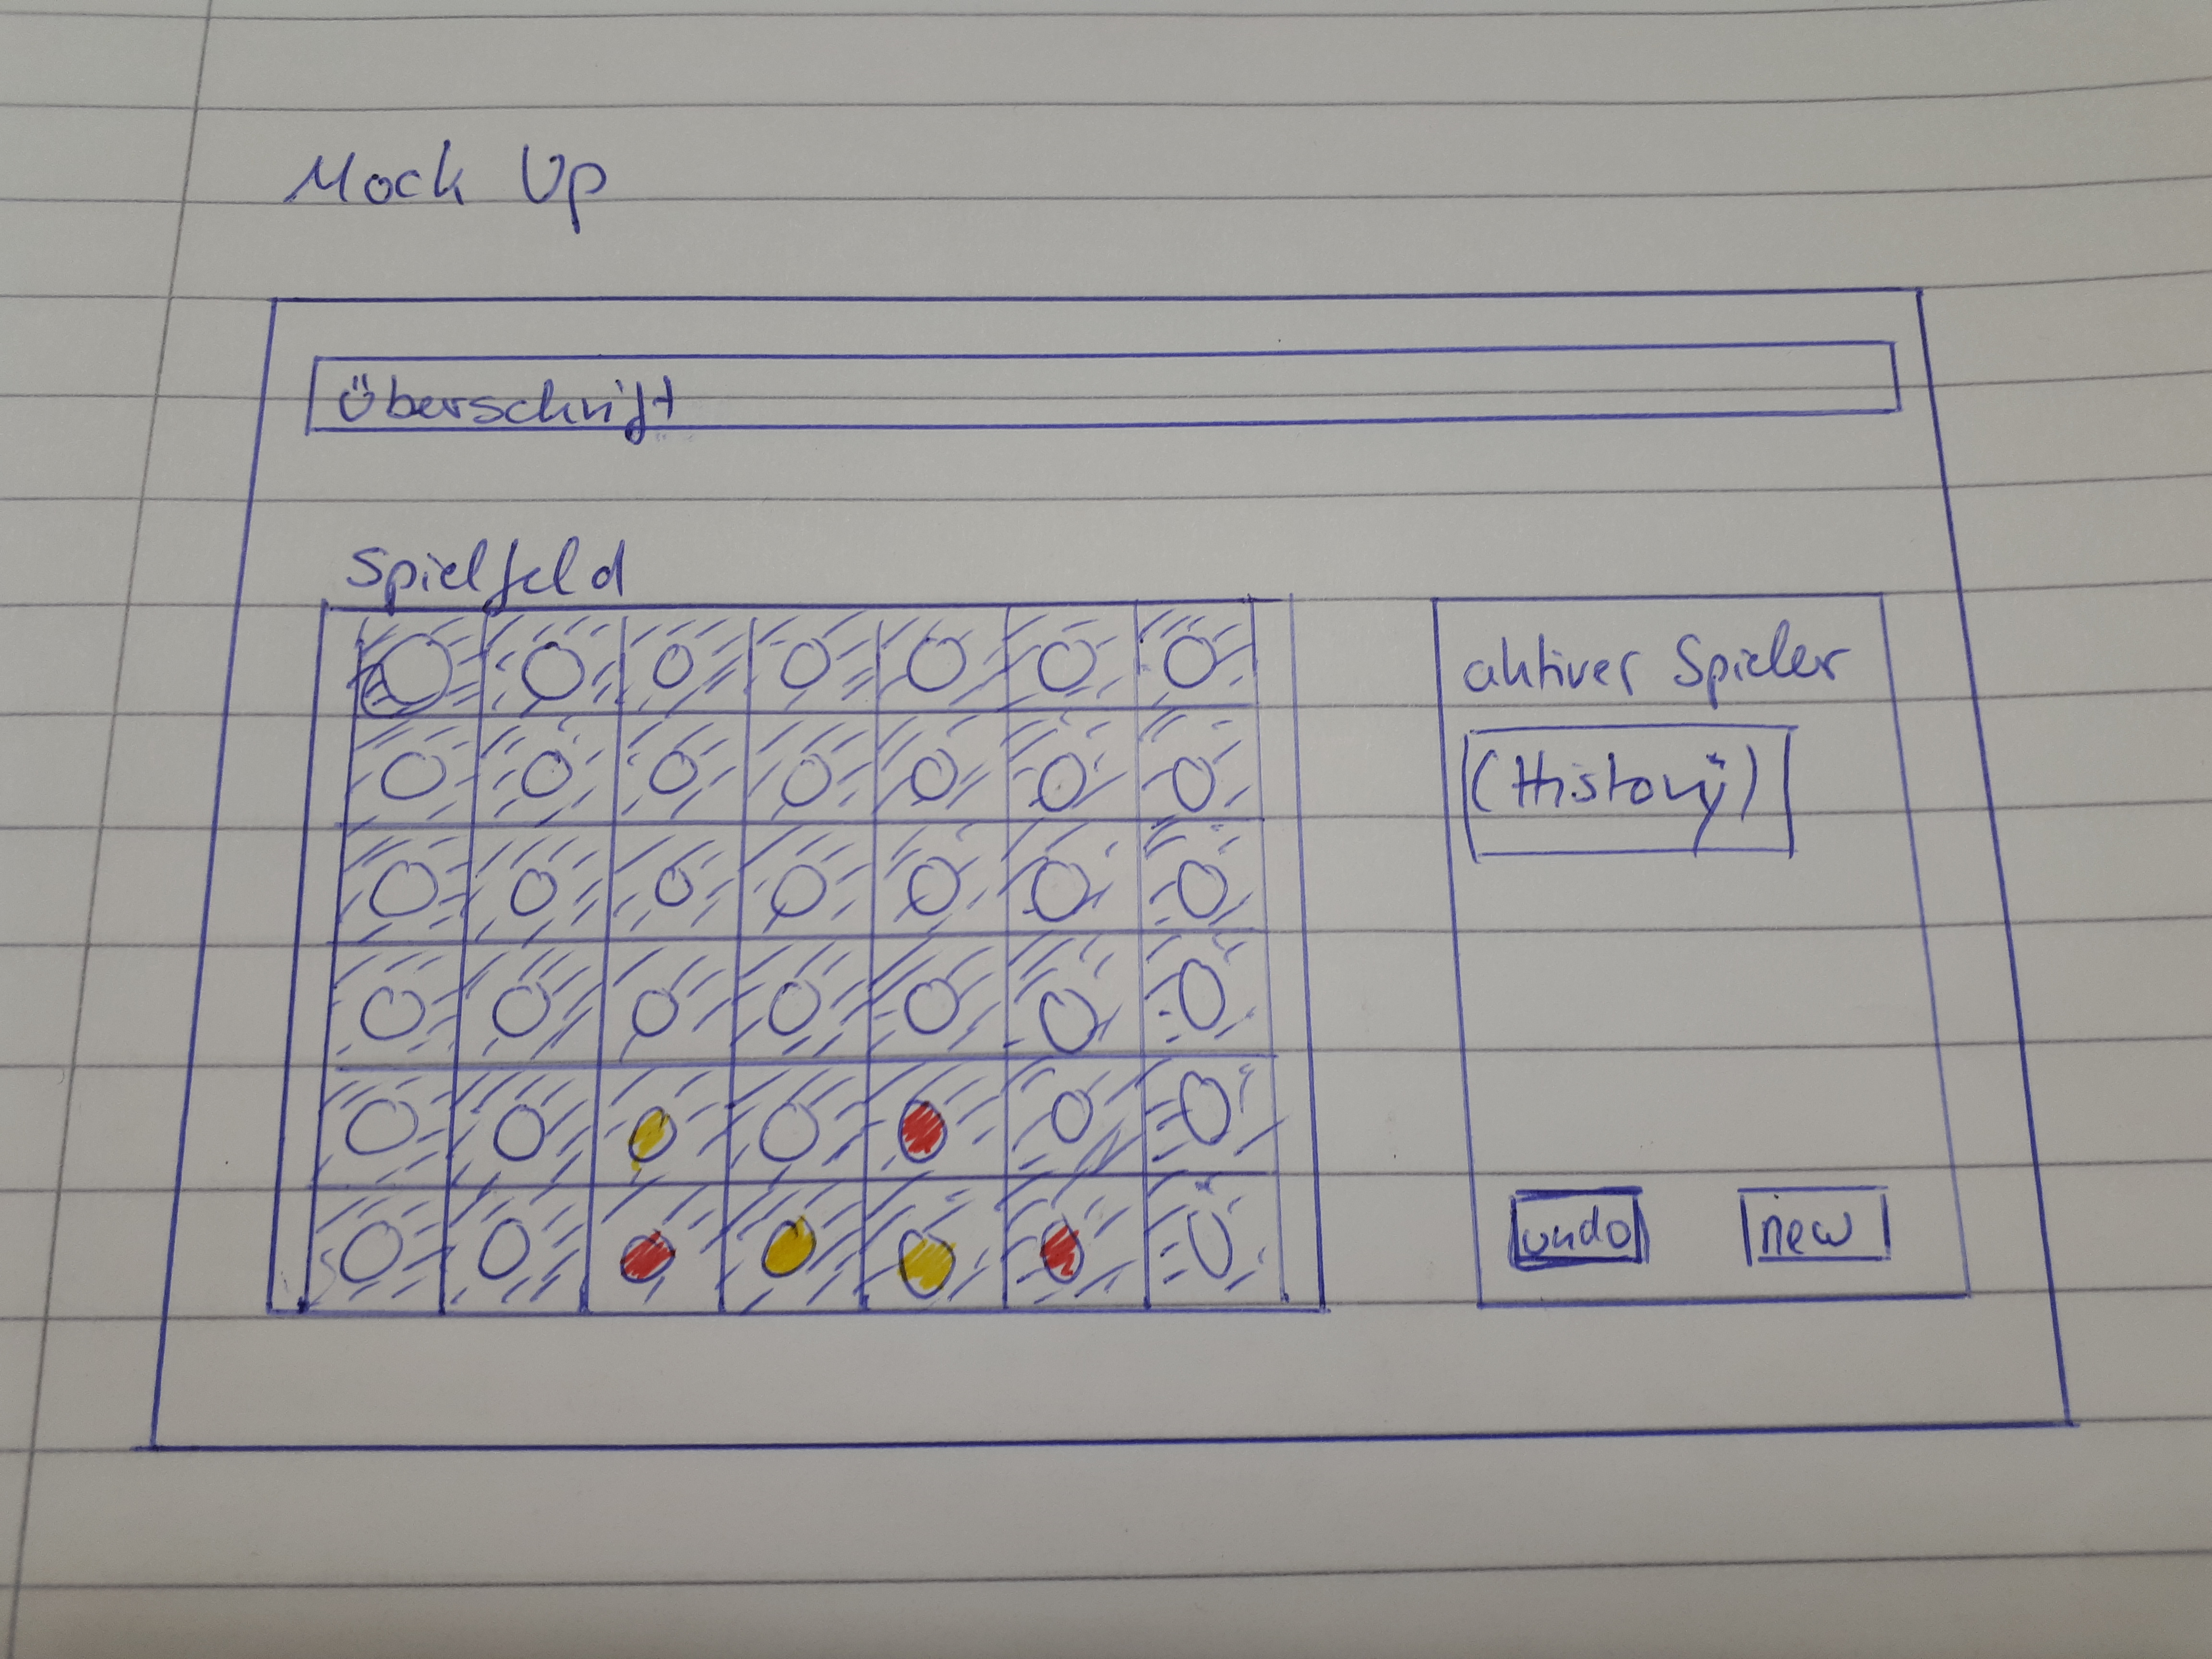 Mock Up
Überschrift
Spielfeld
aktiver Spieler
(History)
undo
new